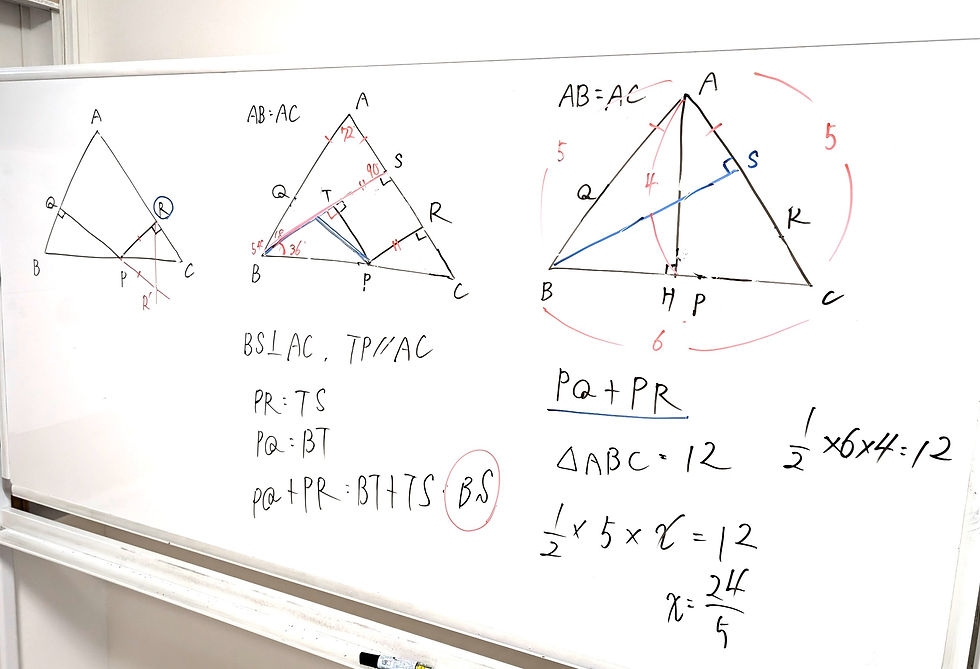 A
Q
R
B
P
C
R'
AB=AC
A
72
S
90
Q
T
R
54
36
B
P
C
BS⊥AC, TP//AC
PR=TS
PQ=BT
PQ+PR=BT+TS=BS
AB=AC
A
5
5
S
Q
4
R
B
H
P
C
6
PQ+PR
△ABC=12
1/2×6×4=12
1/2×5×x=12
x=24/5